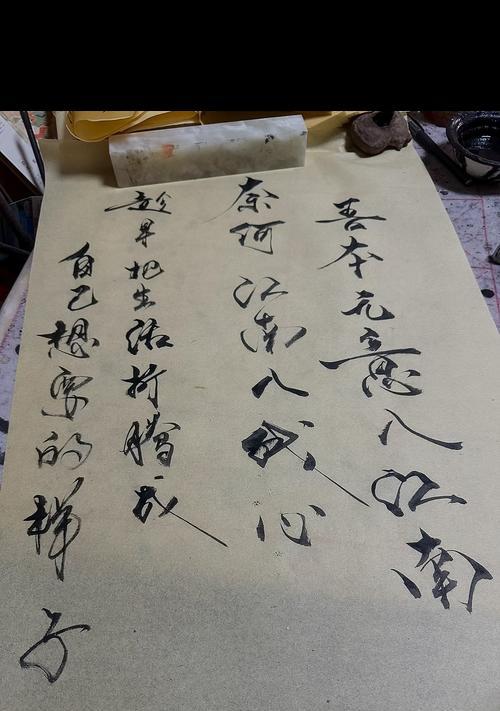 吾本元意入江南
奈何江南入我心
趁早把生活折腾成
自己想要的样子